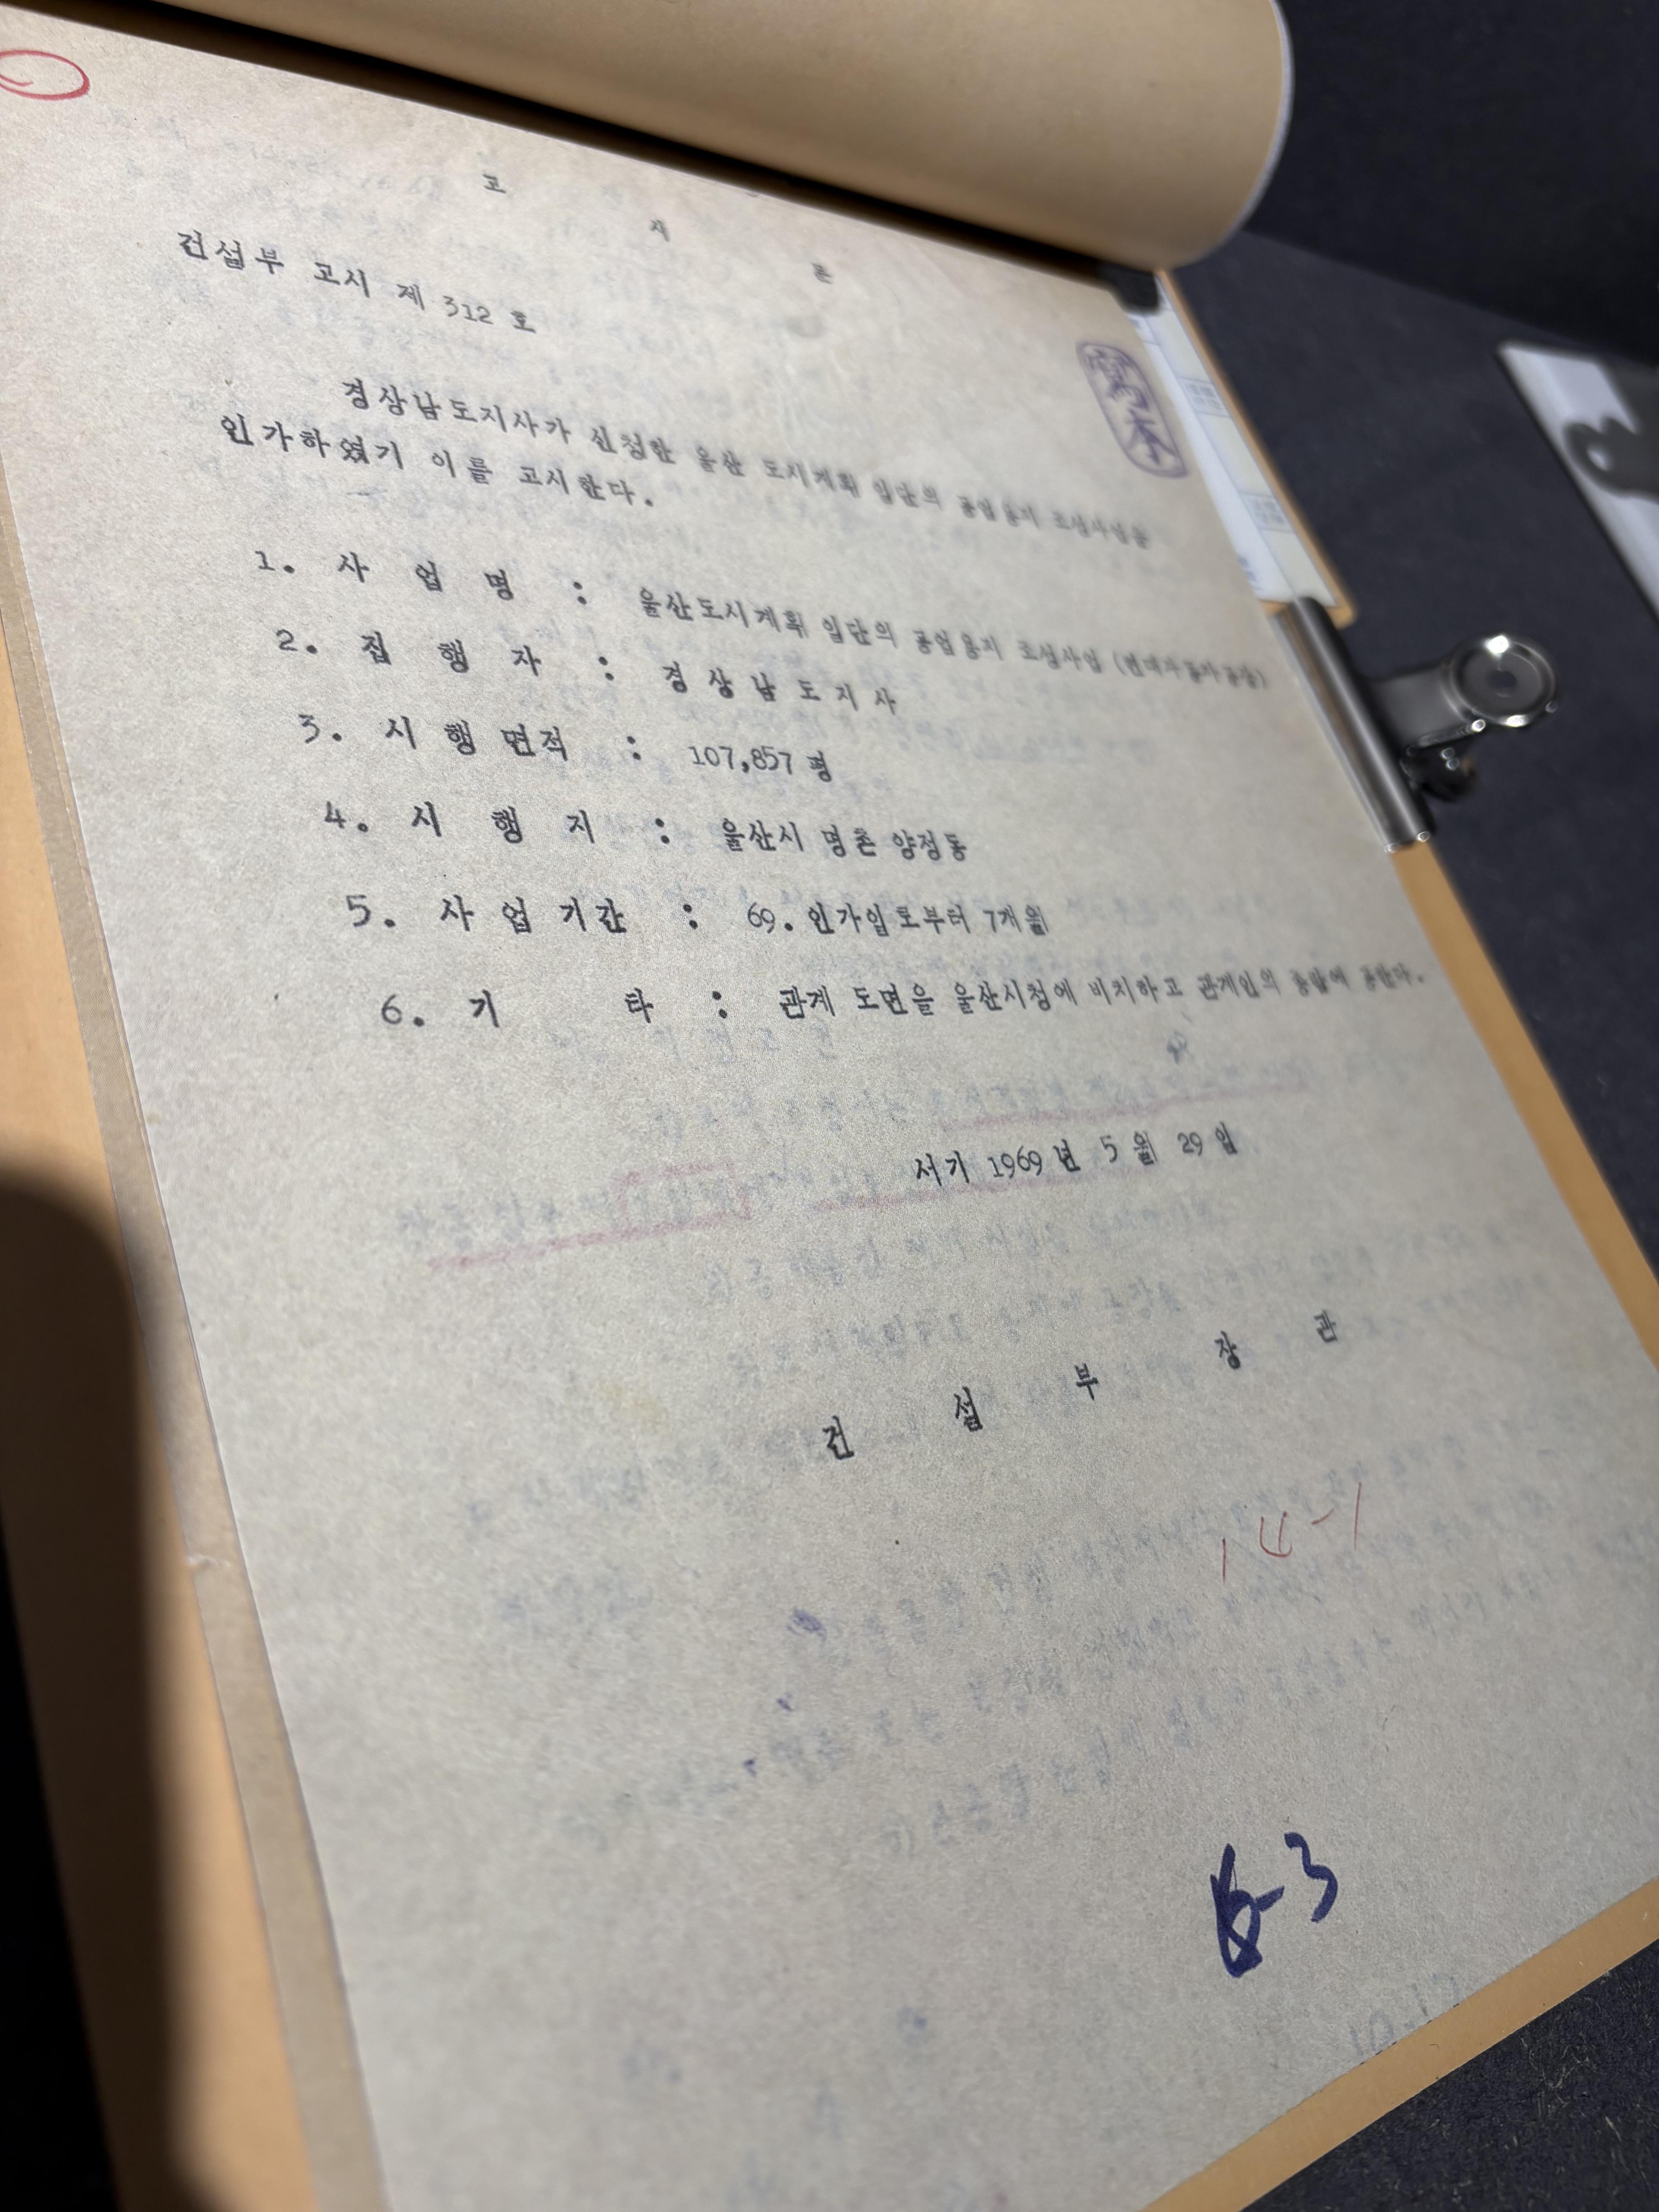 고 시 문
건설부 고시 제 312 호
寫本
경상남도지사가 신청한 울산 도시계획 일단의 공업용지 조성사업을
인가하였기 이를 고시한다.
1. 사 업 명 : 울산도시계획 일단의 공업용지 조성사업 (현대자동차공장)
2. 집 행 자 : 경상남도지사
3. 시 행 면적 : 107,857 평
4. 시 행 지 : 울산시 명촌 양정동
5. 사 업 기간 : 69. 인가일로부터 7개월
6. 기 타 : 관계 도면을 울산시청에 비치하고 관계인의 종람에 공한다.
서기 1969 년 5 월 29 일
건 설 부 장 관
14-1
6-3